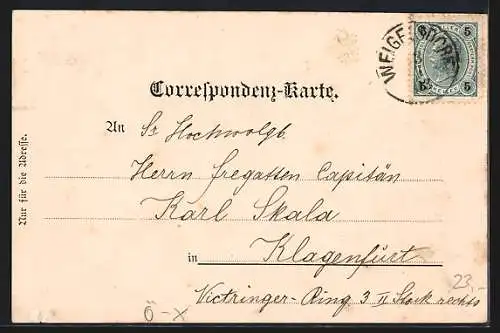 WEIGELSDORF
5 5
5 5
Correspondenz-Karte.
An Sr Hochwohlgb.
Herrn Fregatten Capitän
Karl Skala
in Klagenfurt
Victringer-Ring 3 II Stock rechts
Nur für die Adresse.
23,-
Ö-X